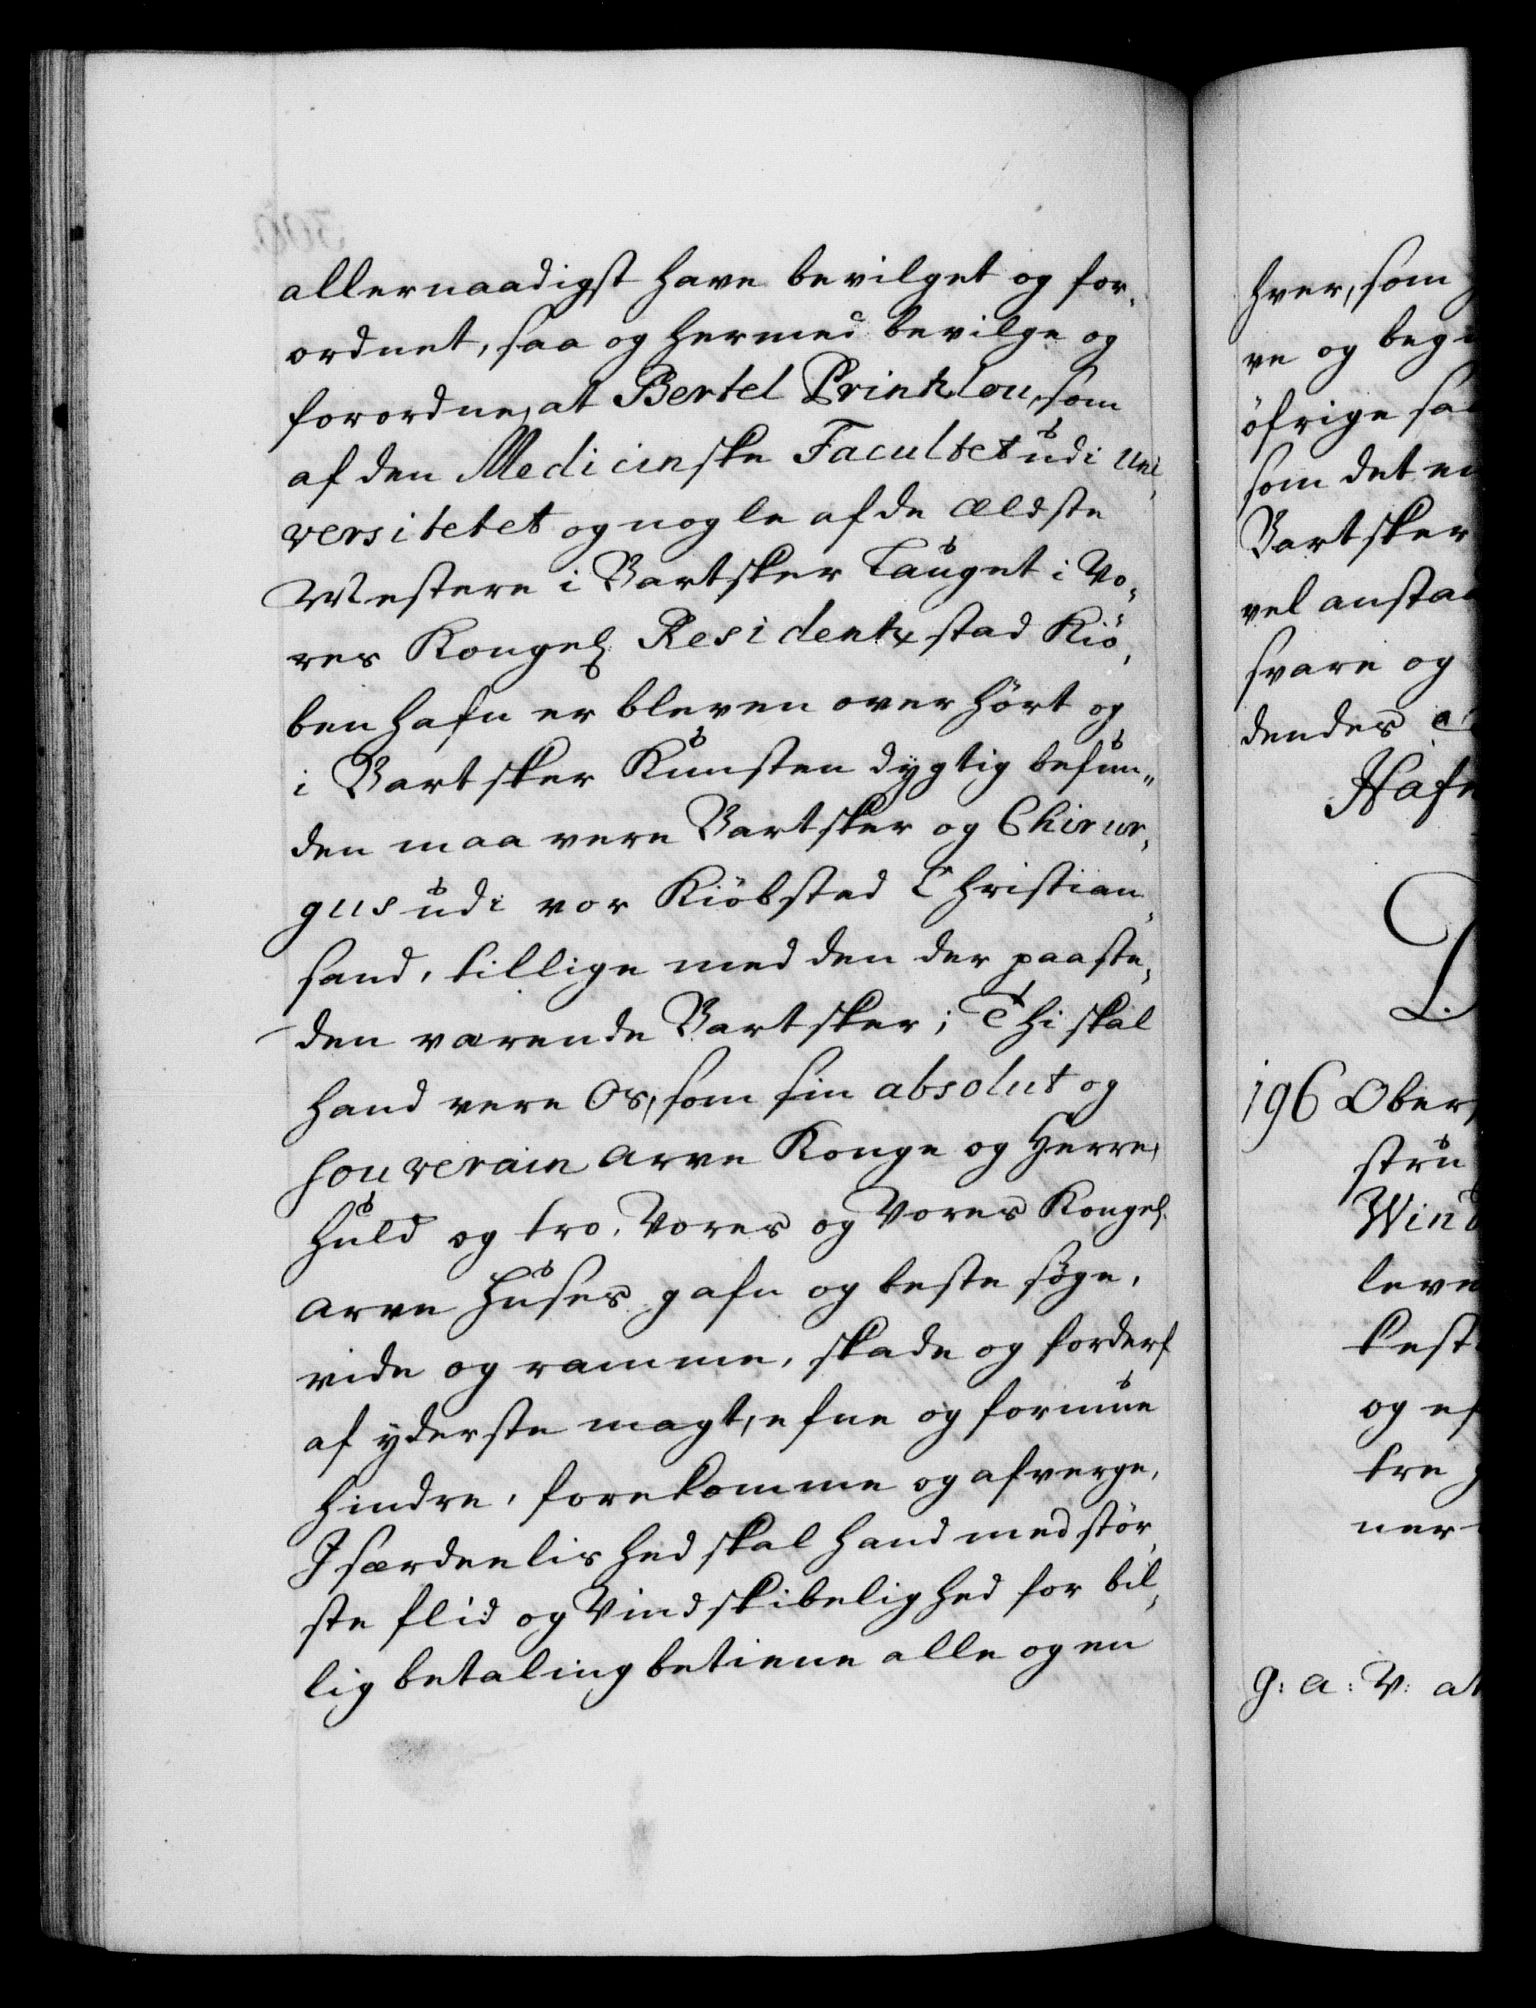 allernaadigst have bevilget og for,
ordnet, saa og hermed bevilge og
forordne, at Bertel Printzlou, som
af den Medicinske Facultet udi Uni,
versitetet og nogle af de ældste
Mestere i Bartsker Lauget i Vo,
res Kongel. Residentz stad Kiö,
benhafn er bleven over hört og
i Bartsker Kunsten dygtig befun,,
den maa vere Bartsker og Chirur,
gus udi vor Kiöbsted Christian,
sand, tillige med den der paa ste,
den værende Bartsker; Thi skal
hand vere Os, som sin absolut og
souverain Arve Konge og Herre,
huld og tro, Vores og Vores Kongel.
Arve Huses gafn og beste söge,
vide og ramme, skade og forderf
af yderste magt, efne og formue
hindre, forekomme og afverge,
Isærdeelis hed skal hand med stör,
ste flid og Vindskibelighed for bil,
lig betaling betiene alle og en
hver, som
ve og beg
öfrige
som det
Bartsker
vel
svare og
dendes
Hafn
196 Ober
stru
Wind
leve
best
og ef
tre
ner
g: a: V: at